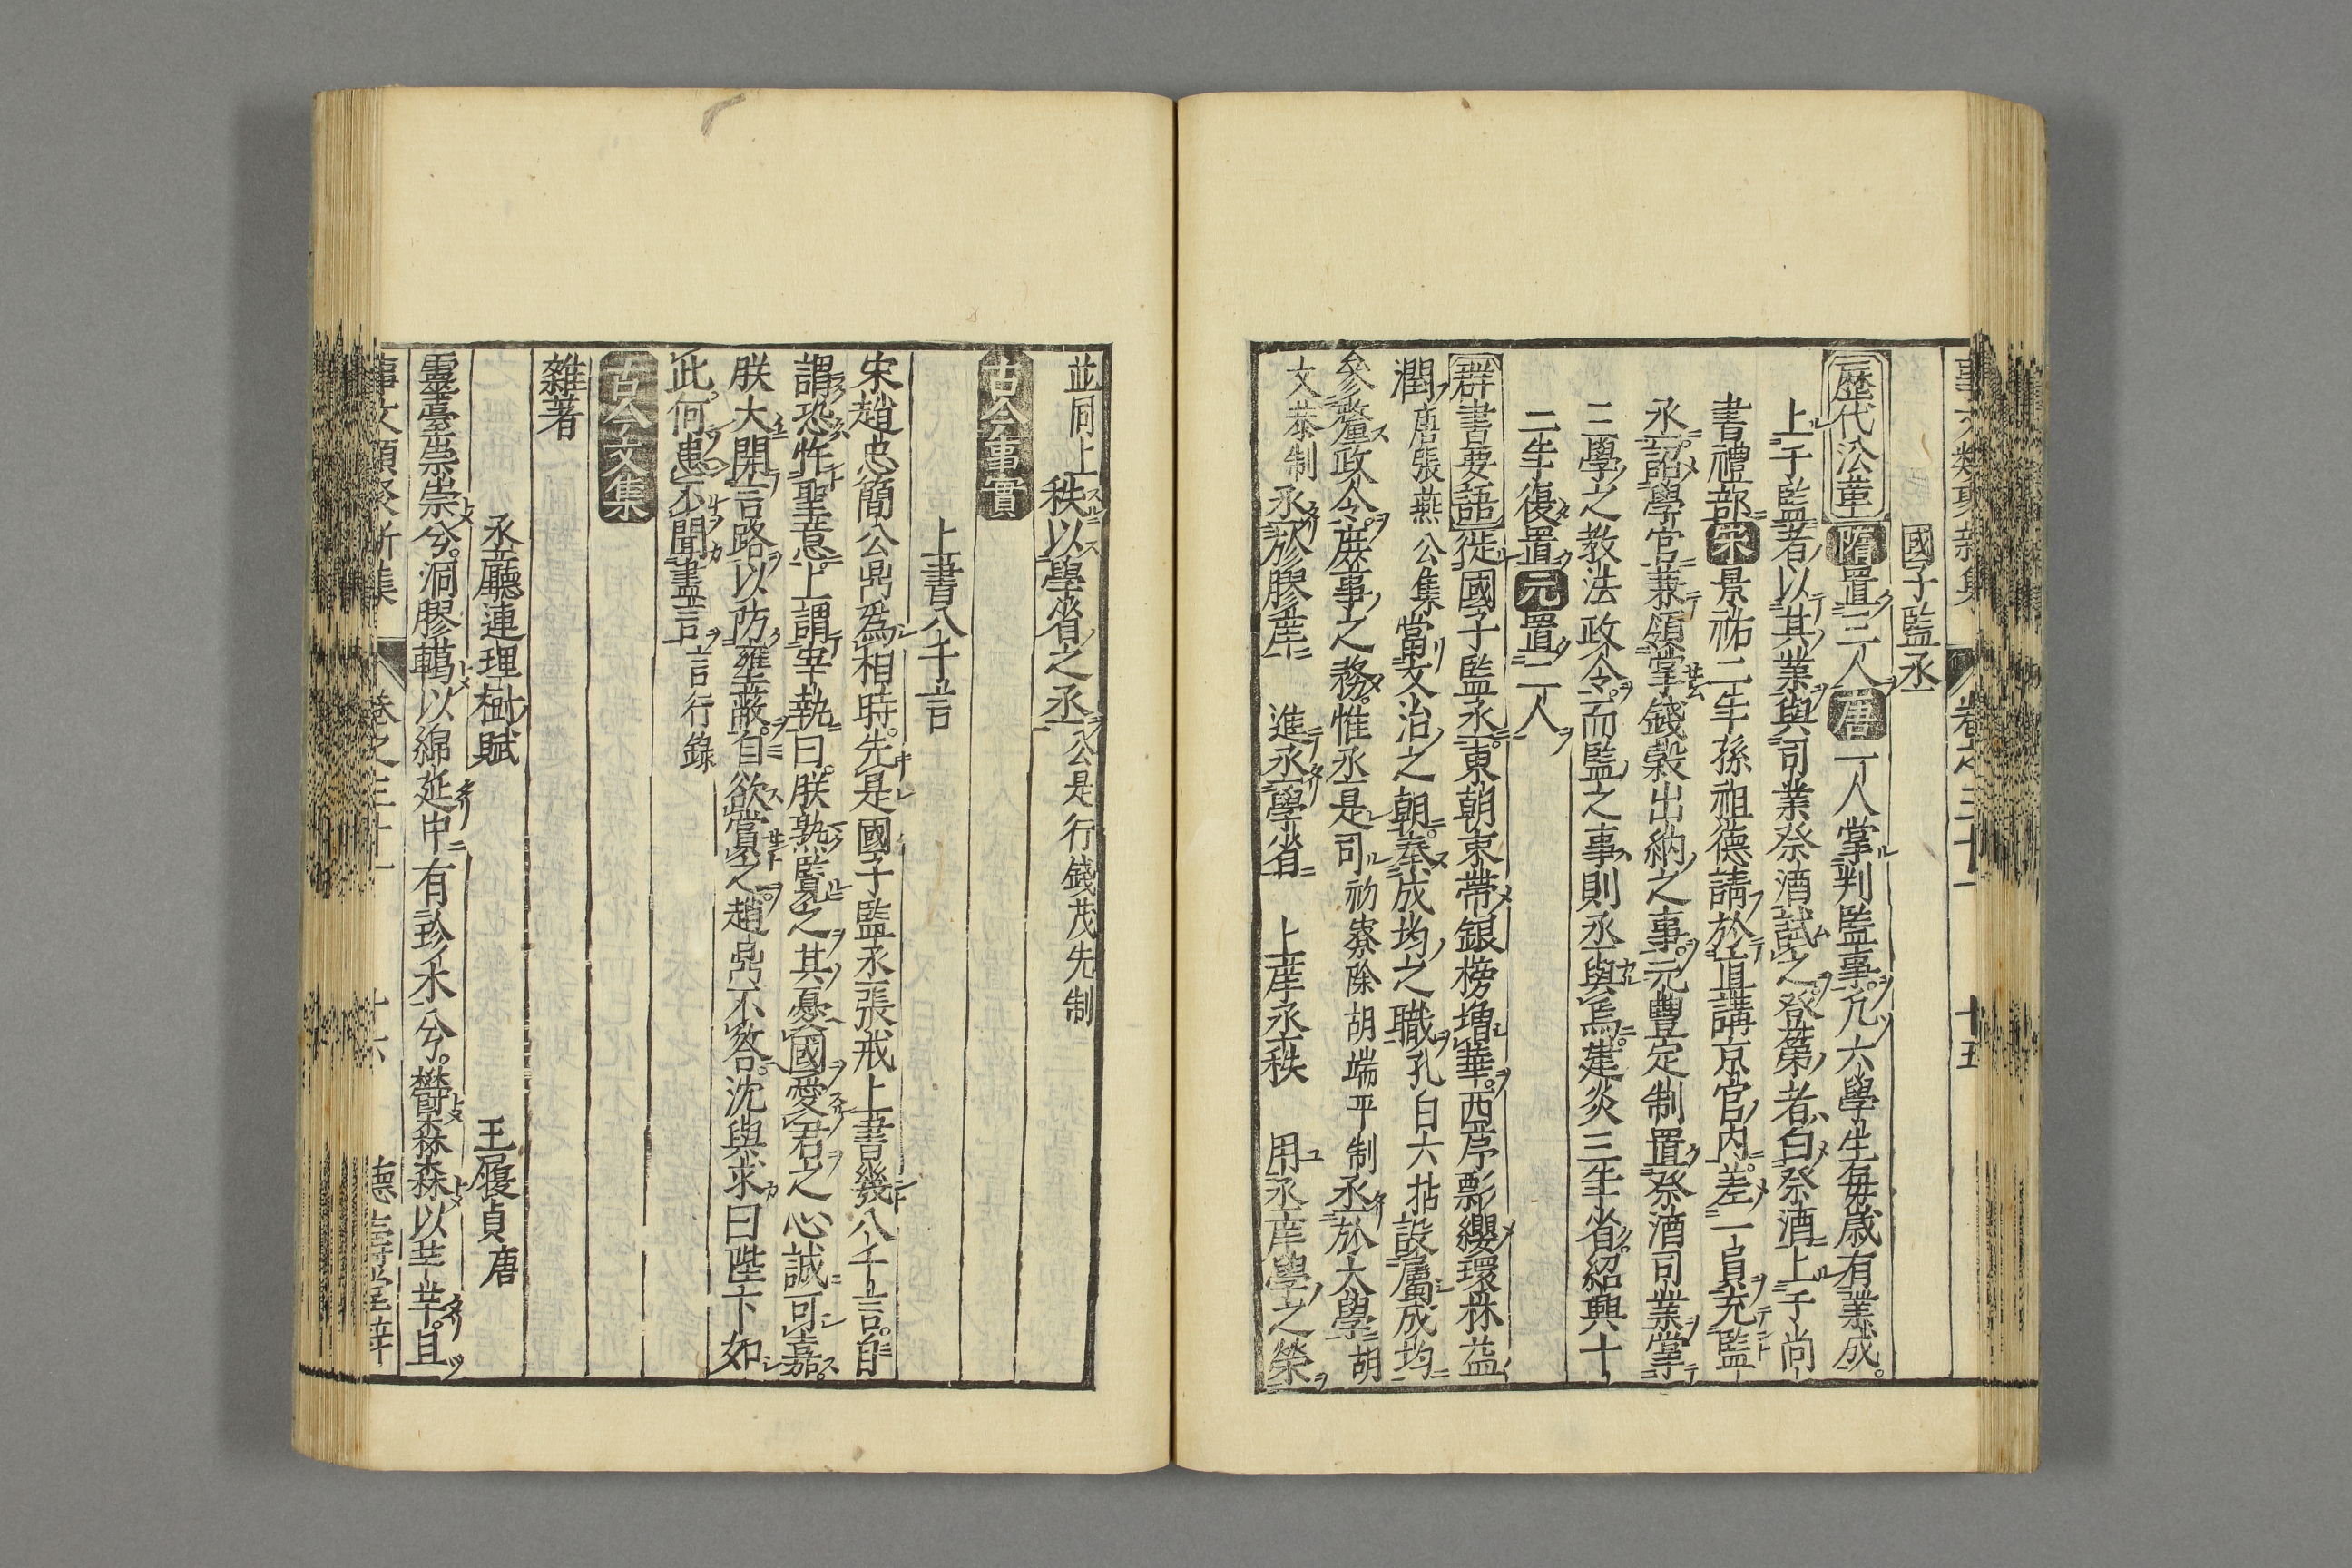 事文類聚新集 卷之三十一 十五
國子監丞
歷代沿革 隋置三人唐一人掌判監事凢六學生每歲有業成
上于監者以其業與司業祭酒試之登第者白祭酒上于尚
書禮部宋景祐二年孫祖德請於直講京官內差一員充監
丞詔學官兼領掌錢穀出納之事元豐定制置祭酒司業掌
三學之教法政令而監之事則丞與焉建炎三年省紹興十
二年復置元置一人
群書要語 從國子監丞東朝束帶銀榜增華西序影纓環林益
潤唐張燕公集當文治之朝奏成均之職孔白六拈設屬成均
參釐政令庶事之務惟丞是司初寮除胡端平制丞於大學胡
文恭制丞於膠庠 進丞學省 上庠丞秩 用丞庠學之榮
並同上秩以學省之丞公是行錢茂先制
古今事實
上書八千言
宋趙忠簡公鼎爲相時先是國子監丞張戒上書幾八千言自
謂恐忤聖意上謂宰執曰朕熟覽之其憂國愛君之心誠可嘉
朕大開言路以防壅蔽自欲賞之趙鼎不答沈與求曰陛下如
此何患不聞盡言言行錄
古今文集
雜著
丞廳連理樹賦 王履貞唐
靈臺崇崇兮洞膠轕以綿延中有珍木兮欎森森以芊芊且
事文類聚新集 卷之三十一 十六 德壽堂梓